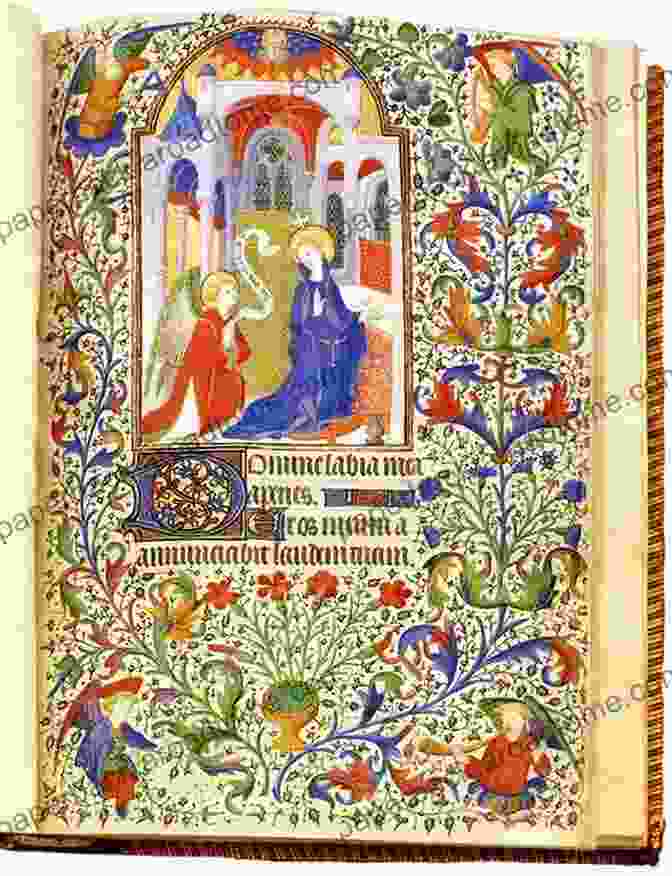 aruadiome.com
Domine labia mea
aperies.
Et os meum a
annunciabit laudem tuam